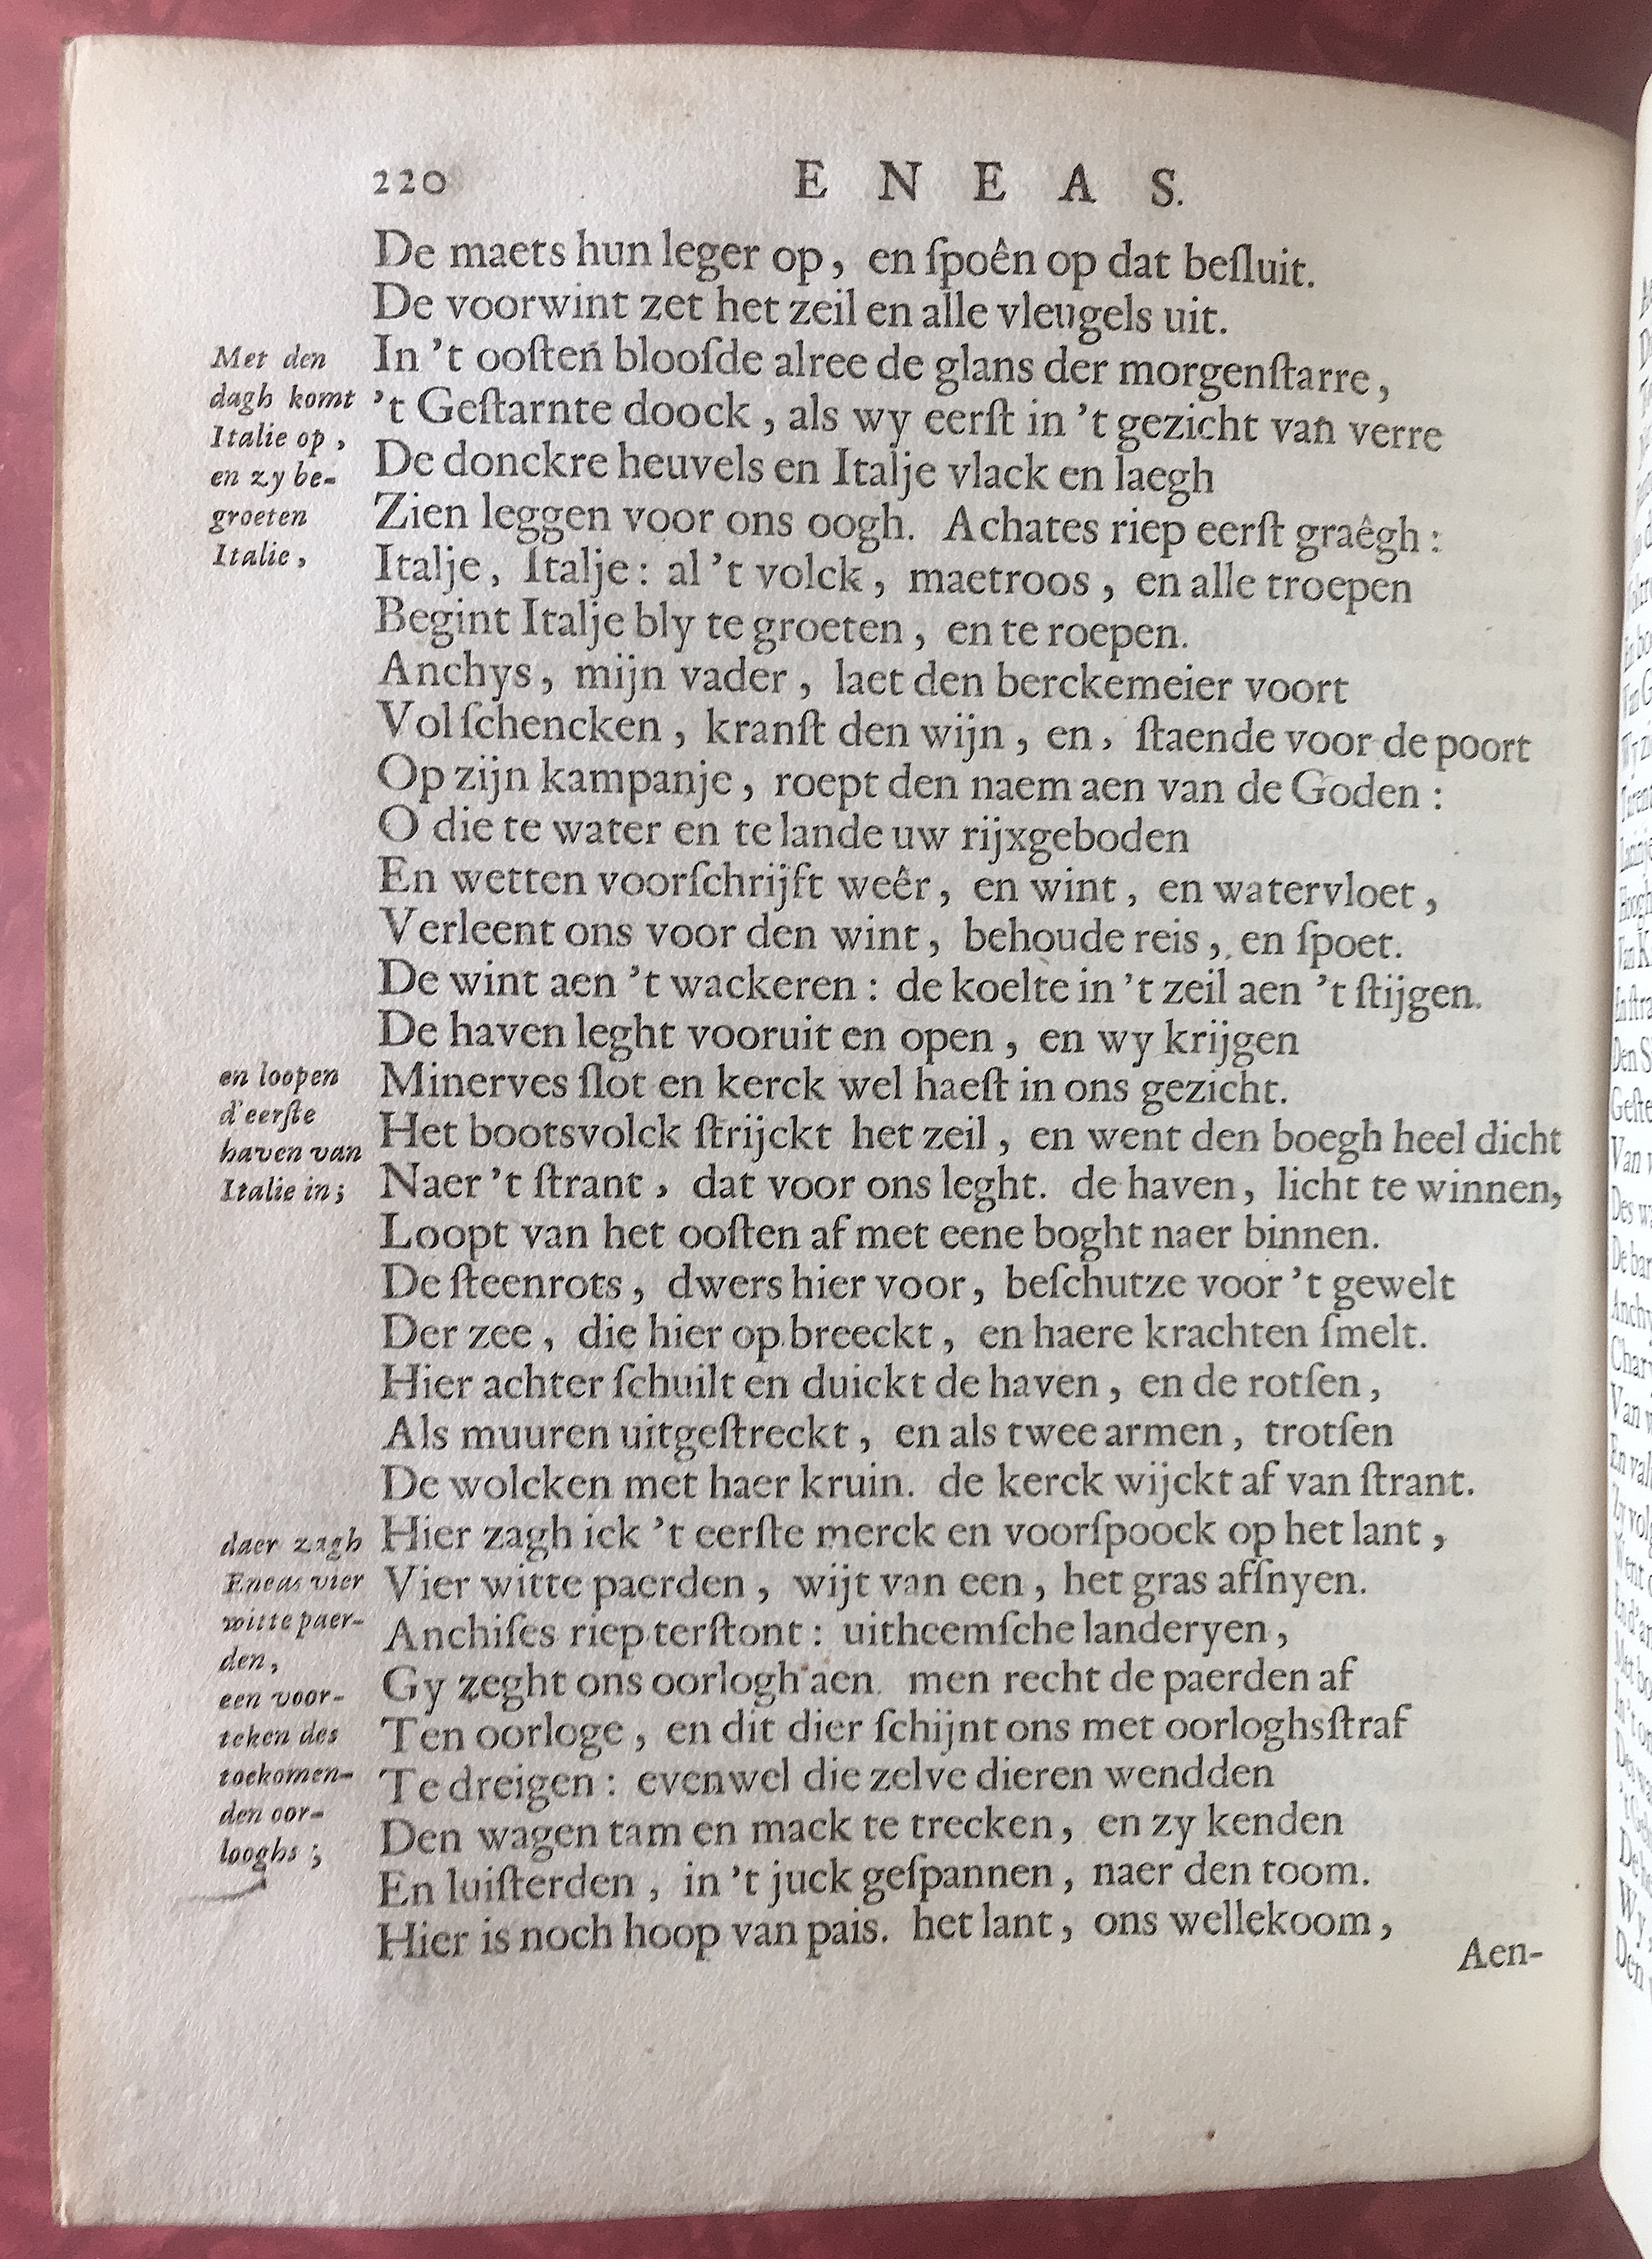 220
E N E A S.
De maets hun leger op, en ſpoên op dat beſluit.
De voorwint zet het zeil en alle vleugels uit.
In 't ooſten blooſde alree de glans der morgenſtarre,
't Geſtarnte doock, als wy eerſt in 't gezicht van verre
De donckre heuvels en Italje vlack en laegh
Zien leggen voor ons oogh. Achates riep eerſt graêgh:
Italje, Italje: al 't volck, maetroos, en alle troepen
Begint Italje bly te groeten, en te roepen.
Met den
dagh komt
Italie op,
en zy be-
groeten
Italie,
Anchys, mijn vader, laet den berckemeier voort
Vol ſchencken, kranſt den wijn, en, ſtaende voor de poort
Op zijn kampanje, roept den naem aen van de Goden:
O die te water en te lande uw rijxgeboden
En wetten voorſchrijft weêr, en wint, en watervloet,
Verleent ons voor den wint, behoude reis, en ſpoet.
De wint aen 't wackeren: de koelte in 't zeil aen 't ſtijgen.
De haven leght vooruit en open, en wy krijgen
Minerves ſlot en kerck wel haeſt in ons gezicht.
Het bootsvolck ſtrijckt het zeil, en went den boegh heel dicht
Naer 't ſtrant, dat voor ons leght. de haven, licht te winnen,
Loopt van het ooſten af met eene boght naer binnen.
en loopen
d'eerſte
haven van
Italie in;
De ſteenrots, dwers hier voor, beſchutze voor 't gewelt
Der zee, die hier op breeckt, en haere krachten ſmelt.
Hier achter ſchuilt en duickt de haven, en de rotſen,
Als muuren uitgeſtreckt, en als twee armen, trotſen
De wolcken met haer kruin. de kerck wijckt af van ſtrant.
Hier zagh ick 't eerſte merck en voorſpoock op het lant,
Vier witte paerden, wijt van een, het gras afſnyen.
Anchiſes riep terſtont: uitheemſche landeryen,
Gy zeght ons oorlogh aen. men recht de paerden af
Ten oorloge, en dit dier ſchijnt ons met oorloghsſtraf
Te dreigen: evenwel die zelve dieren wendden
Den wagen tam en mack te trecken, en zy kenden
En luiſterden, in 't juck geſpannen, naer den toom.
Hier is noch hoop van pais. het lant, ons wellekoom,
daer zagh
Eneas vier
witte paer-
den,
een voor-
teken des
toekomen-
den oor-
looghs;
Aen-